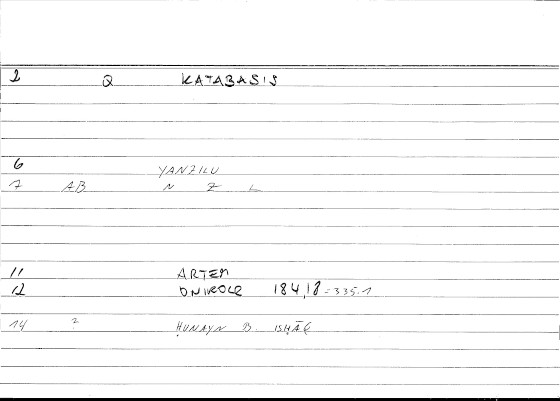 2 Q KATABASIS
6 YANZILU
7 AB N Z L
11 ARTEM
12 ONIROCR 184,18 = 335.1
14 2 ḤUNAYN B. ISḤĀQ